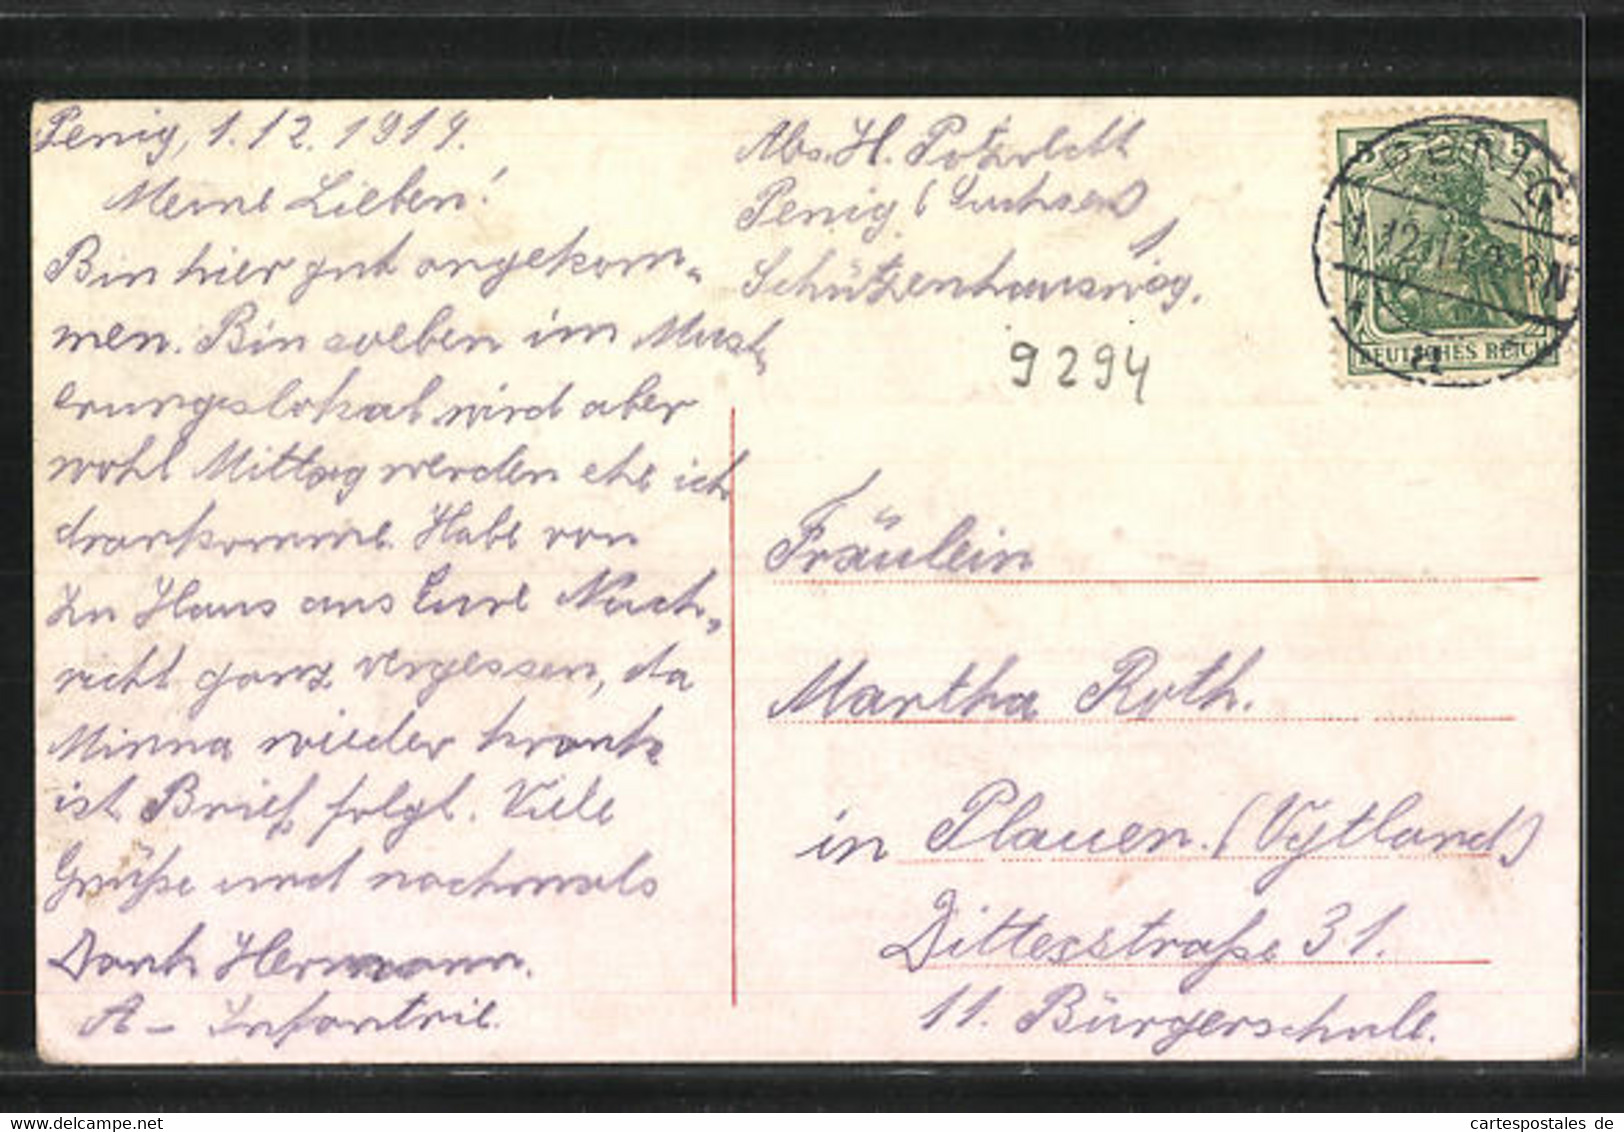 Penig, 1.12.1914.
Meine Lieben!
Bin hier gut angekom-
men. Bin soeben im Must-
erungslokal wird aber
wohl Mittag werden ehe ich
drankomme. Habe von
Zu Haus aus Eure Nach-
richt ganz vergessen, da
Minna wieder krank
ist Brief folgt. Viele
Grüße und nochmals
Dank Hermann.
A- Infantrie.
Abs. H.
Penig (Sachsen)
Schützenhausweg. 1
9294
DEUTSCHES REICH
Fräulein
Martha Roth.
in Plauen. (Vgtland)
Dittesstraße 31.
11. Bürgerschule.
cartespostales de